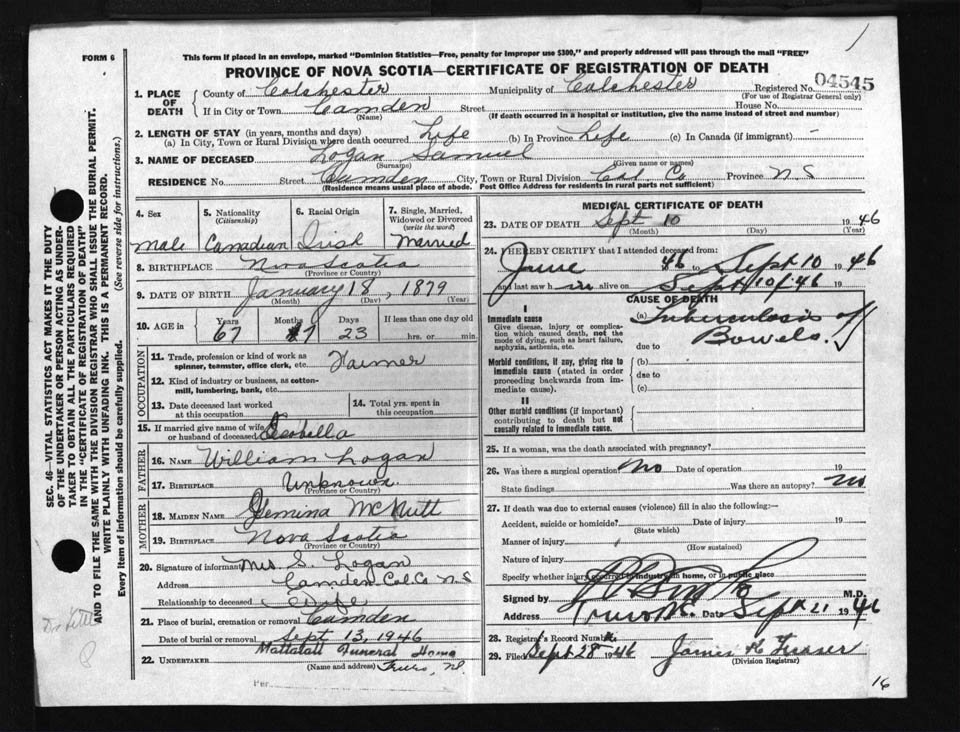 FORM 6
This form if placed in an envelope, marked "Dominion Statistics—Free, penalty for improper use $300," and properly addressed will pass through the mail "FREE"
PROVINCE OF NOVA SCOTIA—CERTIFICATE OF REGISTRATION OF DEATH
04545
1. PLACE OF DEATH
County of Colchester Municipality of Colchester Registered No.
(For use of Registrar General only)
If in City or Town Camden Street House No.
(Name) (If death occurred in a hospital or institution, give the name instead of street and number)
2. LENGTH OF STAY (in years, months and days)
(a) In City, Town or Rural Division where death occurred Life (b) In Province Life (c) In Canada (if immigrant) -
3. NAME OF DECEASED Logan Samuel
(Surname) (Given name or names)
RESIDENCE No. Street Camden City, Town or Rural Division Col. Co Province N S
(Residence means usual place of abode. Post Office Address for residents in rural parts not sufficient)
4. Sex
male
5. Nationality (Citizenship)
Canadian
6. Racial Origin
Irish
7. Single, Married, Widowed or Divorced (write the word)
Married
8. BIRTHPLACE Nova Scotia
(Province or Country)
9. DATE OF BIRTH January 18, 1879
(Month) (Day) (Year)
10. AGE in
Years Months Days If less than one day old
67 7 23 hrs. or min.
OCCUPATION
11. Trade, profession or kind of work as spinner, teamster, office clerk, etc. Farmer
12. Kind of industry or business, as cotton-mill, lumbering, bank, etc.
13. Date deceased last worked at this occupation
14. Total yrs. spent in this occupation
15. If married give name of wife or husband of deceased Isobella
FATHER
16. NAME William Logan
17. BIRTHPLACE Unknown
(Province or Country)
MOTHER
18. MAIDEN NAME Jemina McNutt
19. BIRTHPLACE Nova Scotia
(Province or Country)
20. Signature of informant Mrs. S. Logan
Address Camden Col. Co N.S
Relationship to deceased Wife
21. Place of burial, cremation or removal Camden
Date of burial or removal Sept 13, 1946
22. UNDERTAKER Mattatall Funeral Home
(Name and address) Truro, N.
Per
MEDICAL CERTIFICATE OF DEATH
23. DATE OF DEATH Sept 10 1946
(Month) (Day) (Year)
24. I HEREBY CERTIFY that I attended deceased from:
June 46 to Sept 10 1946
and last saw h im alive on Sept 10/46 19
CAUSE OF DEATH
I
Immediate cause
Give disease, injury or complication which caused death, not the mode of dying, such as heart failure, asphyxia, asthenia, etc.
(a) Tuberculosis of Bowels.
due to
Morbid conditions, if any, giving rise to immediate cause (stated in order proceeding backwards from immediate cause).
(b)
due to
(c)
II
Other morbid conditions (if important) contributing to death but not causally related to immediate cause.
25. If a woman, was the death associated with pregnancy?
26. Was there a surgical operation? No Date of operation 19
State findings Was there an autopsy? no
27. If death was due to external causes (violence) fill in also the following:—
Accident, suicide or homicide? Date of injury 19
(State which)
Manner of injury
(How sustained)
Nature of injury
Specify whether injury occurred in industry, in home, or in public place
Signed by M.D.
Address Truro N. Date Sept 21 1946
28. Registrar's Record Number
29. Filed Sept 28 1946 James K Fraser
(Division Registrar)
16
SEC. 46—VITAL STATISTICS ACT MAKES IT THE DUTY
OF THE UNDERTAKER OR PERSON ACTING AS UNDER-
TAKER TO OBTAIN ALL THE PARTICULARS REQUIRED
IN THE "CERTIFICATE OF REGISTRATION OF DEATH"
AND TO FILE THE SAME WITH THE DIVISION REGISTRAR WHO SHALL ISSUE THE BURIAL PERMIT.
WRITE PLAINLY WITH UNFADING INK. THIS IS A PERMANENT RECORD.
Every item of information should be carefully supplied. (See reverse side for instructions.)